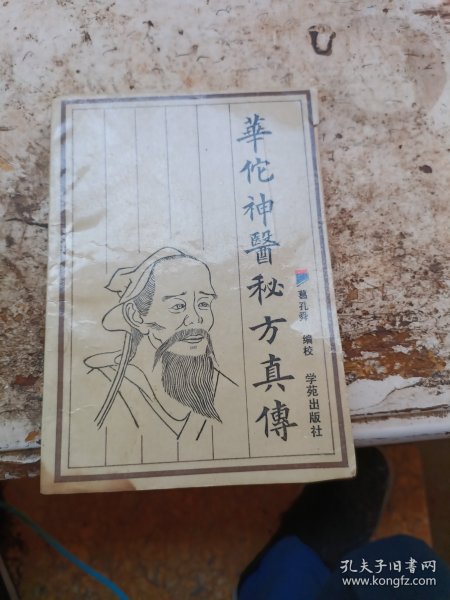 華佗神醫秘方真傳
葛孔舜 编校
学苑出版社
孔夫子旧书网
www.kongfz.com